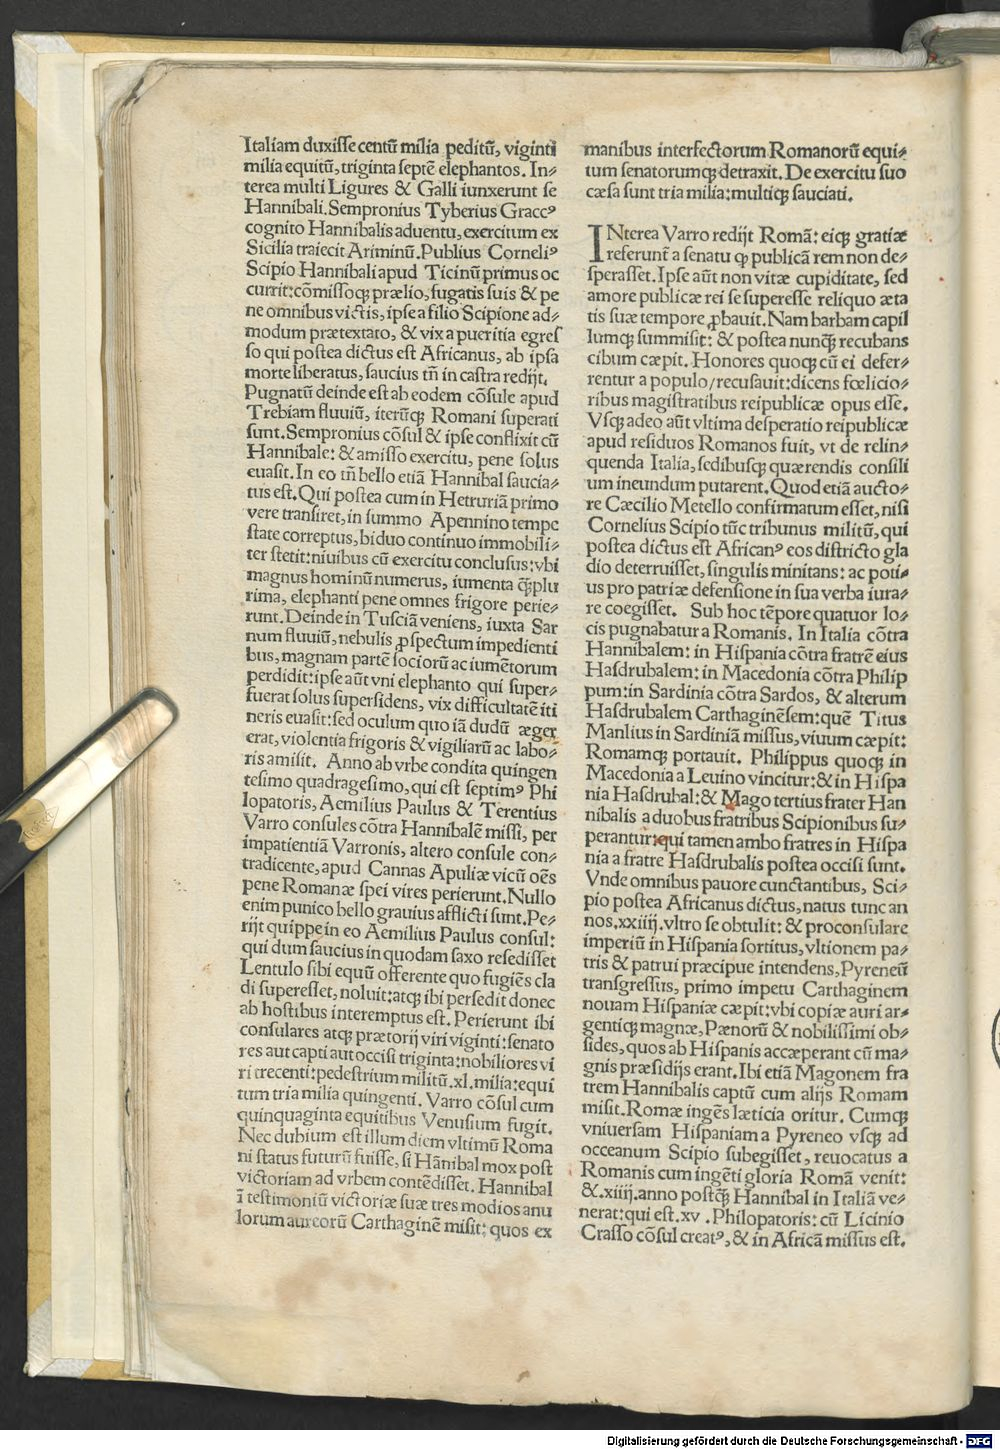 Italiam duxisse centū milia peditū, viginti
milia equitū, triginta septē elephantos. In⸗
terea multi Ligures & Galli iunxerunt se
Hannibali. Sempronius Tyberius Graccꝰ
cognito Hannibalis aduentu, exercitum ex
Sicilia traiecit Ariminū. Publius Corneliꝰ
Scipio Hannibali apud Ticinū primus oc
currit: cōmissoqꝫ prælio, fugatis suis & pe
ne omnibus victis, ipse a filio Scipione ad⸗
modum prætextato, & vix a pueritia egres
so qui postea dictus est Africanus, ab ipsa
morte liberatus, saucius tñ in castra redijt.
Pugnatū deinde est ab eodem cōsule apud
Trebiam fluuiū, iterūqꝫ Romani superati
sunt. Sempronius cōsul & ipse conflixit cū
Hannibale: & amisso exercitu, pene solus
euasit. In eo tñ bello etiā Hannibal saucia⸗
tus est. Qui postea cum in Hetruriā primo
vere transiret, in summo Apennino tempe
state correptus, biduo continuo immobili⸗
ter stetit: niuibus cū exercitu conclusus: vbi
magnus hominū numerus, iumenta qꝫ̄plu
rima, elephanti pene omnes frigore perie⸗
runt. Deinde in Tusciā veniens, iuxta Sar
num fluuiū, nebulis ꝓspectum impedienti
bus, magnam partē sociorū ac iumētorum
perdidit: ipse aūt vni elephanto qui super⸗
fuerat solus supersidens, vix difficultatē iti
neris euasit: sed oculum quo iā dudū æger
erat, violentia frigoris & vigiliarū ac labo⸗
ris amisit. Anno ab vrbe condita quingen
tesimo quadragesimo, qui est septimꝰ Phi
lopatoris, Aemilius Paulus & Terentius
Varro consules cōtra Hannibalē missi, per
impatientiā Varronis, altero consule con⸗
tradicente, apud Cannas Apuliæ vicū oēs
pene Romanæ spei vires perierunt. Nullo
enim punico bello grauius afflicti sunt. Pe⸗
rijt quippe in eo Aemilius Paulus consul:
qui dum saucius in quodam saxo resedisset
Lentulo sibi equū offerente quo fugiēs cla
di superesset, noluit: atqꝫ ibi persedit donec
ab hostibus interemptus est. Perierunt ibi
consulares atqꝫ prætorij viri viginti: senato
res aut capti aut occisi triginta: nobiliores vi
ri trecenti: pedestrium militū. xl. milia: equi
tum tria milia quingenti. Varro cōsul cum
quinquaginta equitibus Venusium fugit.
Nec dubium est illum diem vltimū Roma
ni status futurū fuisse, si Hānibal mox post
victoriam ad vrbem contēdisset. Hannibal
ī testimoniū victoriæ suæ tres modios anu
lorum aureorū Carthaginē misit: quos ex
manibus interfectorum Romanorū equi⸗
tum senatorumqꝫ detraxit. De exercitu suo
cæsa sunt tria milia: multiqꝫ sauciati.
INterea Varro redijt Romā: eiqꝫ gratiæ
referunt̄ a senatu qꝫ publicā rem non de⸗
sperasset. Ipse aūt non vitæ cupiditate, sed
amore publicæ rei se superesse reliquo æta
tis suæ tempore ꝓbauit. Nam barbam capil
lumqꝫ summisit: & postea nunqꝫ̄ recubans
cibum cæpit. Honores quoqꝫ cū ei defer⸗
rentur a populo/ recusauit: dicens fœlicio⸗
ribus magistratibus reipublicæ opus esse.
Vsqꝫ adeo aūt vltima desperatio reipublicæ
apud residuos Romanos fuit, vt de relin⸗
quenda Italia, sedibusqꝫ quærendis consili
um ineundum putarent. Quod etiā aucto⸗
re Cæcilio Metello confirmatum esset, nisi
Cornelius Scipio tūc tribunus militū, qui
postea dictus est Africanꝰ eos districto gla
dio deterruisset, singulis minitans: ac poti⸗
us pro patriæ defensione in sua verba iura⸗
re coegisset. Sub hoc tēpore quatuor lo⸗
cis pugnabatur a Romanis. In Italia cōtra
Hannibalem: in Hispania cōtra fratrē eius
Hasdrubalem: in Macedonia cōtra Philip
pum: in Sardinia cōtra Sardos, & alterum
Hasdrubalem Carthaginēsem: quē Titus
Manlius in Sardiniā missus, viuum cæpit:
Romamqꝫ portauit. Philippus quoqꝫ in
Macedonia a Leuino vincitur: & in Hispa
nia Hasdrubal: & Mago tertius frater Han
nibalis a duobus fratribus Scipionibus su⸗
perantur: qui tamen ambo fratres in Hispa
nia a fratre Hasdrubalis postea occisi sunt.
Vnde omnibus pauore cunctantibus, Sci⸗
pio postea Africanus dictus, natus tunc an
nos. xxiiij. vltro se obtulit: & proconsulare
imperiū in Hispania sortitus, vltionem pa⸗
tris & patrui præcipue intendens, Pyreneū
transgressus, primo impetu Carthaginem
nouam Hispaniæ cæpit: vbi copiæ auri ar⸗
gentiqꝫ magnæ, Pænorū & nobilissimi ob⸗
sides, quos ab Hispanis accæperant cū ma⸗
gnis præsidijs erant. Ibi etiā Magonem fra
trem Hannibalis captū cum alijs Romam
misit. Romæ ingēs læticia oritur. Cumqꝫ
vniuersam Hispaniam a Pyreneo vsqꝫ ad
occeanum Scipio subegisset, reuocatus a
Romanis cum ingēti gloria Romā venit:
&. xiiij. anno postqꝫ̄ Hannibal in Italiā ve⸗
nerat: qui est. xv. Philopatoris: cū Licinio
Crasso cōsul creatꝰ, & in Africā missus est.
Digitalisierung gefördert durch die Deutsche Forschungsgemeinschaft - DFG